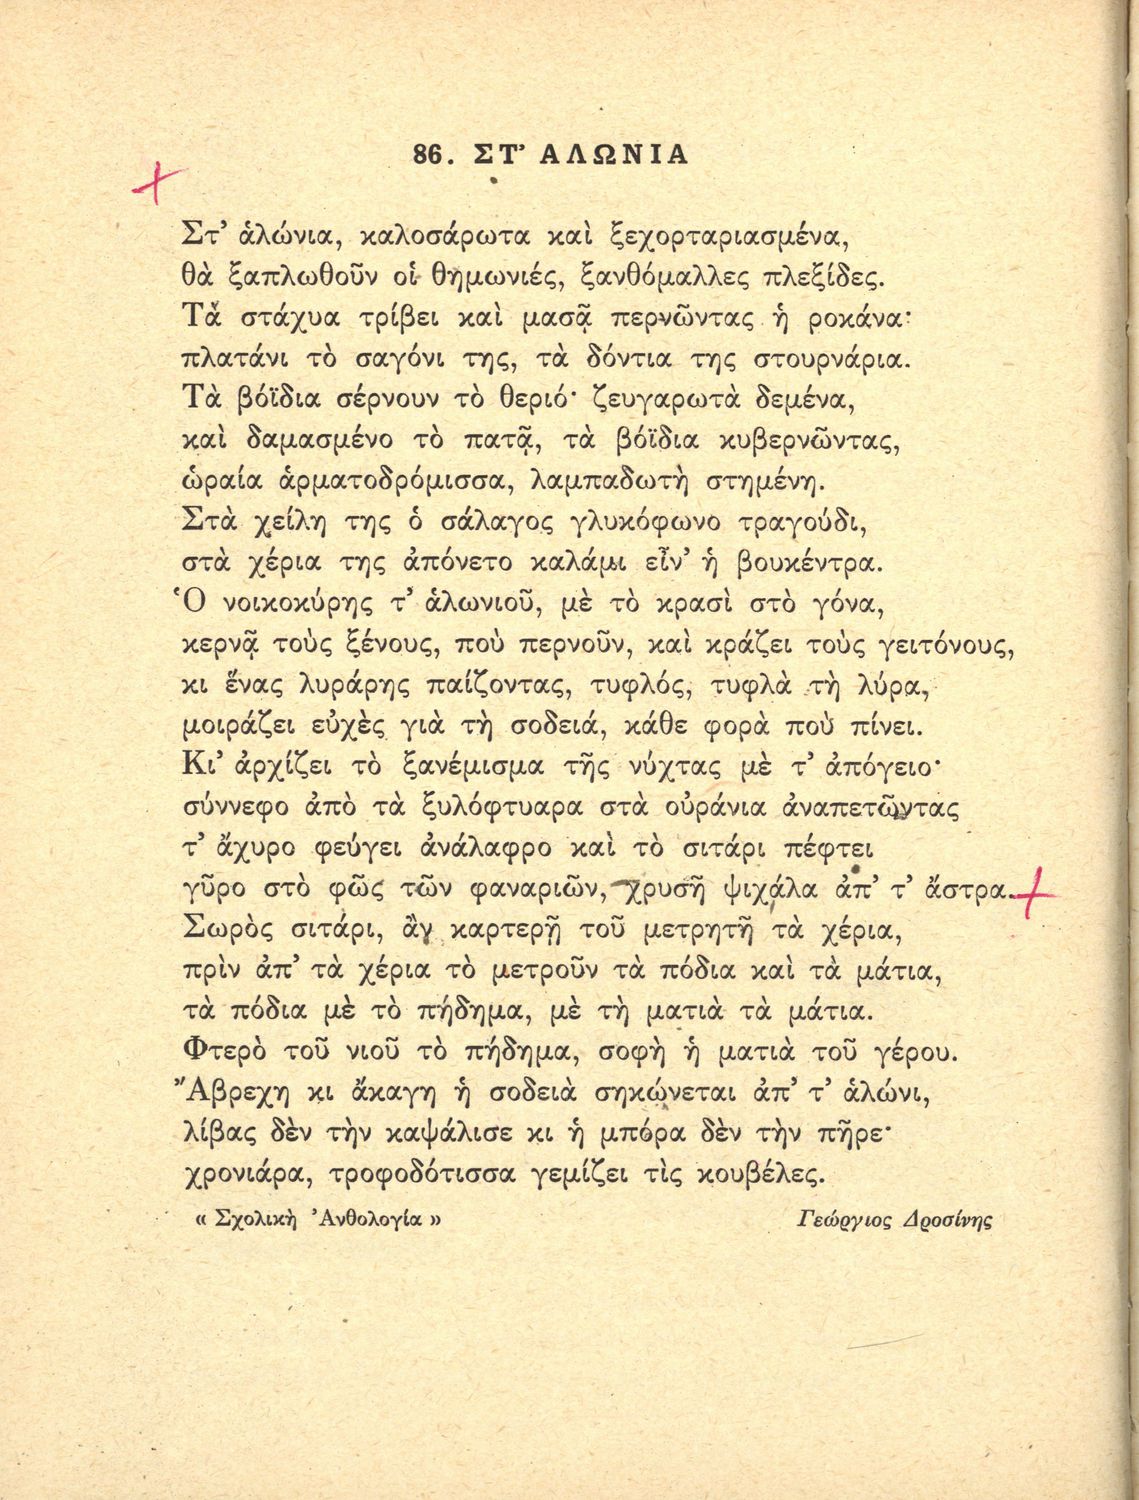 86. ΣΤ’ ΑΛΩΝΙΑ
Στ’ ἁλώνια, καλοσάρωτα καὶ ξεχορταριασμένα,
θὰ ξαπλωθοῦν οἱ θημωνιές, ξανθόμαλλες πλεξίδες.
Τὰ στάχυα τρίβει καὶ μασᾷ περνῶντας ἡ ροκάνα·
πλατάνι τὸ σαγόνι της, τὰ δόντια της στουρνάρια.
Τὰ βόϊδια σέρνουν τὸ θεριό· ζευγαρωτὰ δεμένα,
καὶ δαμασμένο τὸ πατᾷ, τὰ βόϊδια κυβερνῶντας,
ὡραία ἁρματοδρόμισσα, λαμπαδωτὴ στημένη.
Στὰ χείλη της ὁ σάλαγος γλυκόφωνο τραγούδι,
στὰ χέρια της ἀπόνετο καλάμι εἶν’ ἡ βουκέντρα.
Ὁ νοικοκύρης τ’ ἁλωνιοῦ, μὲ τὸ κρασὶ στὸ γόνα,
κερνᾷ τοὺς ξένους, ποὺ περνοῦν, καὶ κράζει τοὺς γειτόνους,
κι ἕνας λυράρης παίζοντας, τυφλός, τυφλὰ τὴ λύρα,
μοιράζει εὐχὲς γιὰ τὴ σοδειά, κάθε φορὰ ποὺ πίνει.
Κι’ ἀρχίζει τὸ ξανέμισμα τῆς νύχτας μὲ τ’ ἀπόγειο·
σύννεφο ἀπὸ τὰ ξυλόφτυαρα στὰ οὐράνια ἀναπετῶντας
τ’ ἄχυρο φεύγει ἀνάλαφρο καὶ τὸ σιτάρι πέφτει
γῦρο στὸ φῶς τῶν φαναριῶν, χρυσῆ ψιχάλα ἀπ’ τ’ ἄστρα.
Σωρὸς σιτάρι, ἂν καρτερῇ τοῦ μετρητῆ τὰ χέρια,
πρὶν ἀπ’ τὰ χέρια τὸ μετροῦν τὰ πόδια καὶ τὰ μάτια,
τὰ πόδια μὲ τὸ πήδημα, μὲ τὴ ματιὰ τὰ μάτια.
Φτερὸ τοῦ νιοῦ τὸ πήδημα, σοφὴ ἡ ματιὰ τοῦ γέρου.
Ἄβρεχη κι ἄκαγη ἡ σοδειὰ σηκώνεται ἀπ’ τ’ ἁλώνι,
λίβας δὲν τὴν καψάλισε κι ἡ μπόρα δὲν τὴν πῆρε·
χρονιάρα, τροφοδότισσα γεμίζει τὶς κουβέλες.
« Σχολικὴ Ἀνθολογία » Γεώργιος Δροσίνης